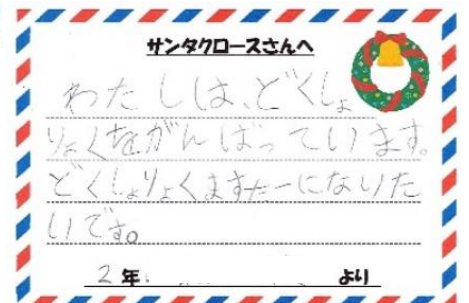 サンタクロースさんへ
わたしは、どくしょ
りょくをがんばっています。
どくしょりょくますたーになりた
いです。
2年 より